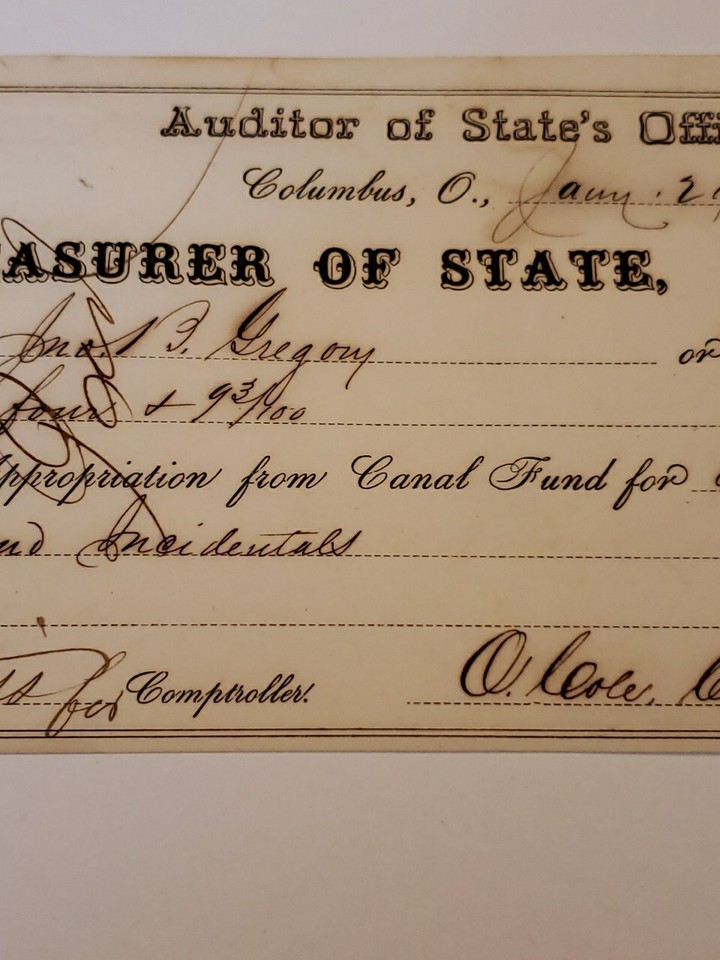 Auditor of State's Offi
Columbus, O., Jany. 2
EASURER OF STATE,
Jno. B. Gregory or
four & 93/100
Appropriation from Canal Fund for
and Incidentals
for Comptroller.
O. Cole, C